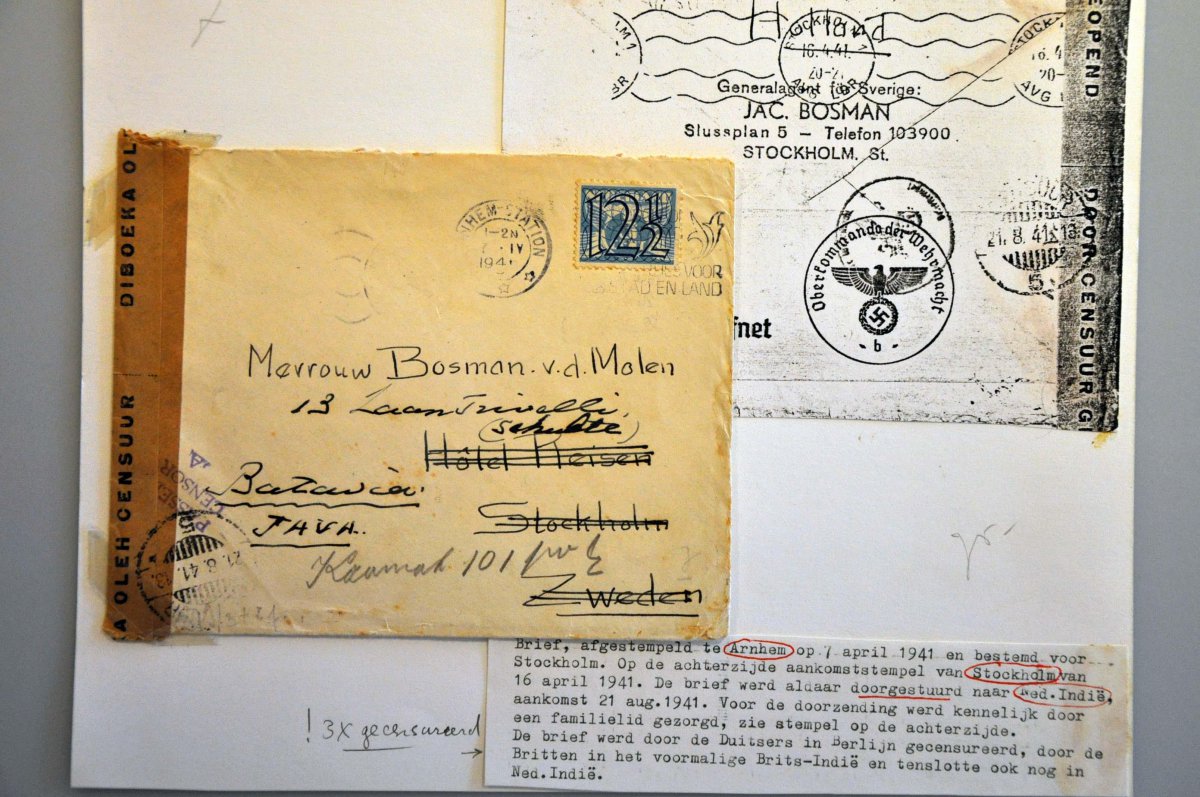 Holland
STOCKHOLM 1
16.4.41
20-21
AVG LBR
STOCK
16.4
20-
AVG
Generalagent för Sverige:
JAC. BOSMAN
Slussplan 5 — Telefon 103900
STOCKHOLM. St.
EOPEND
DOOR CENSUUR G
21.8.41
5
Oberkommando der Wehrmacht
- b -
fnet
DIBOEKA OL
A OLEH CENSUUR
NHEM-STATION
1-2N
IV
194
12½
VOOR
STAD EN LAND
Mevrouw Bosman. v.d. Molen
13 Laan Trivelli
(Schulte)
Hôtel Reisen
Batavia.
Stockholm
JAVA.
Karamat 101 pav
Zweden
CENSOR
A
21.8.41
Brief, afgestempeld te Arnhem op 7 april 1941 en bestemd voor
Stockholm. Op de achterzijde aankomststempel van Stockholm van
16 april 1941. De brief werd aldaar doorgestuurd naar Ned.Indië,
aankomst 21 aug.1941. Voor de doorzending werd kennelijk door
een familielid gezorgd, zie stempel op de achterzijde.
De brief werd door de Duitsers in Berlijn gecensureerd, door de
Britten in het voormalige Brits-Indië en tenslotte ook nog in
Ned.Indië.
! 3x gecensureerd →